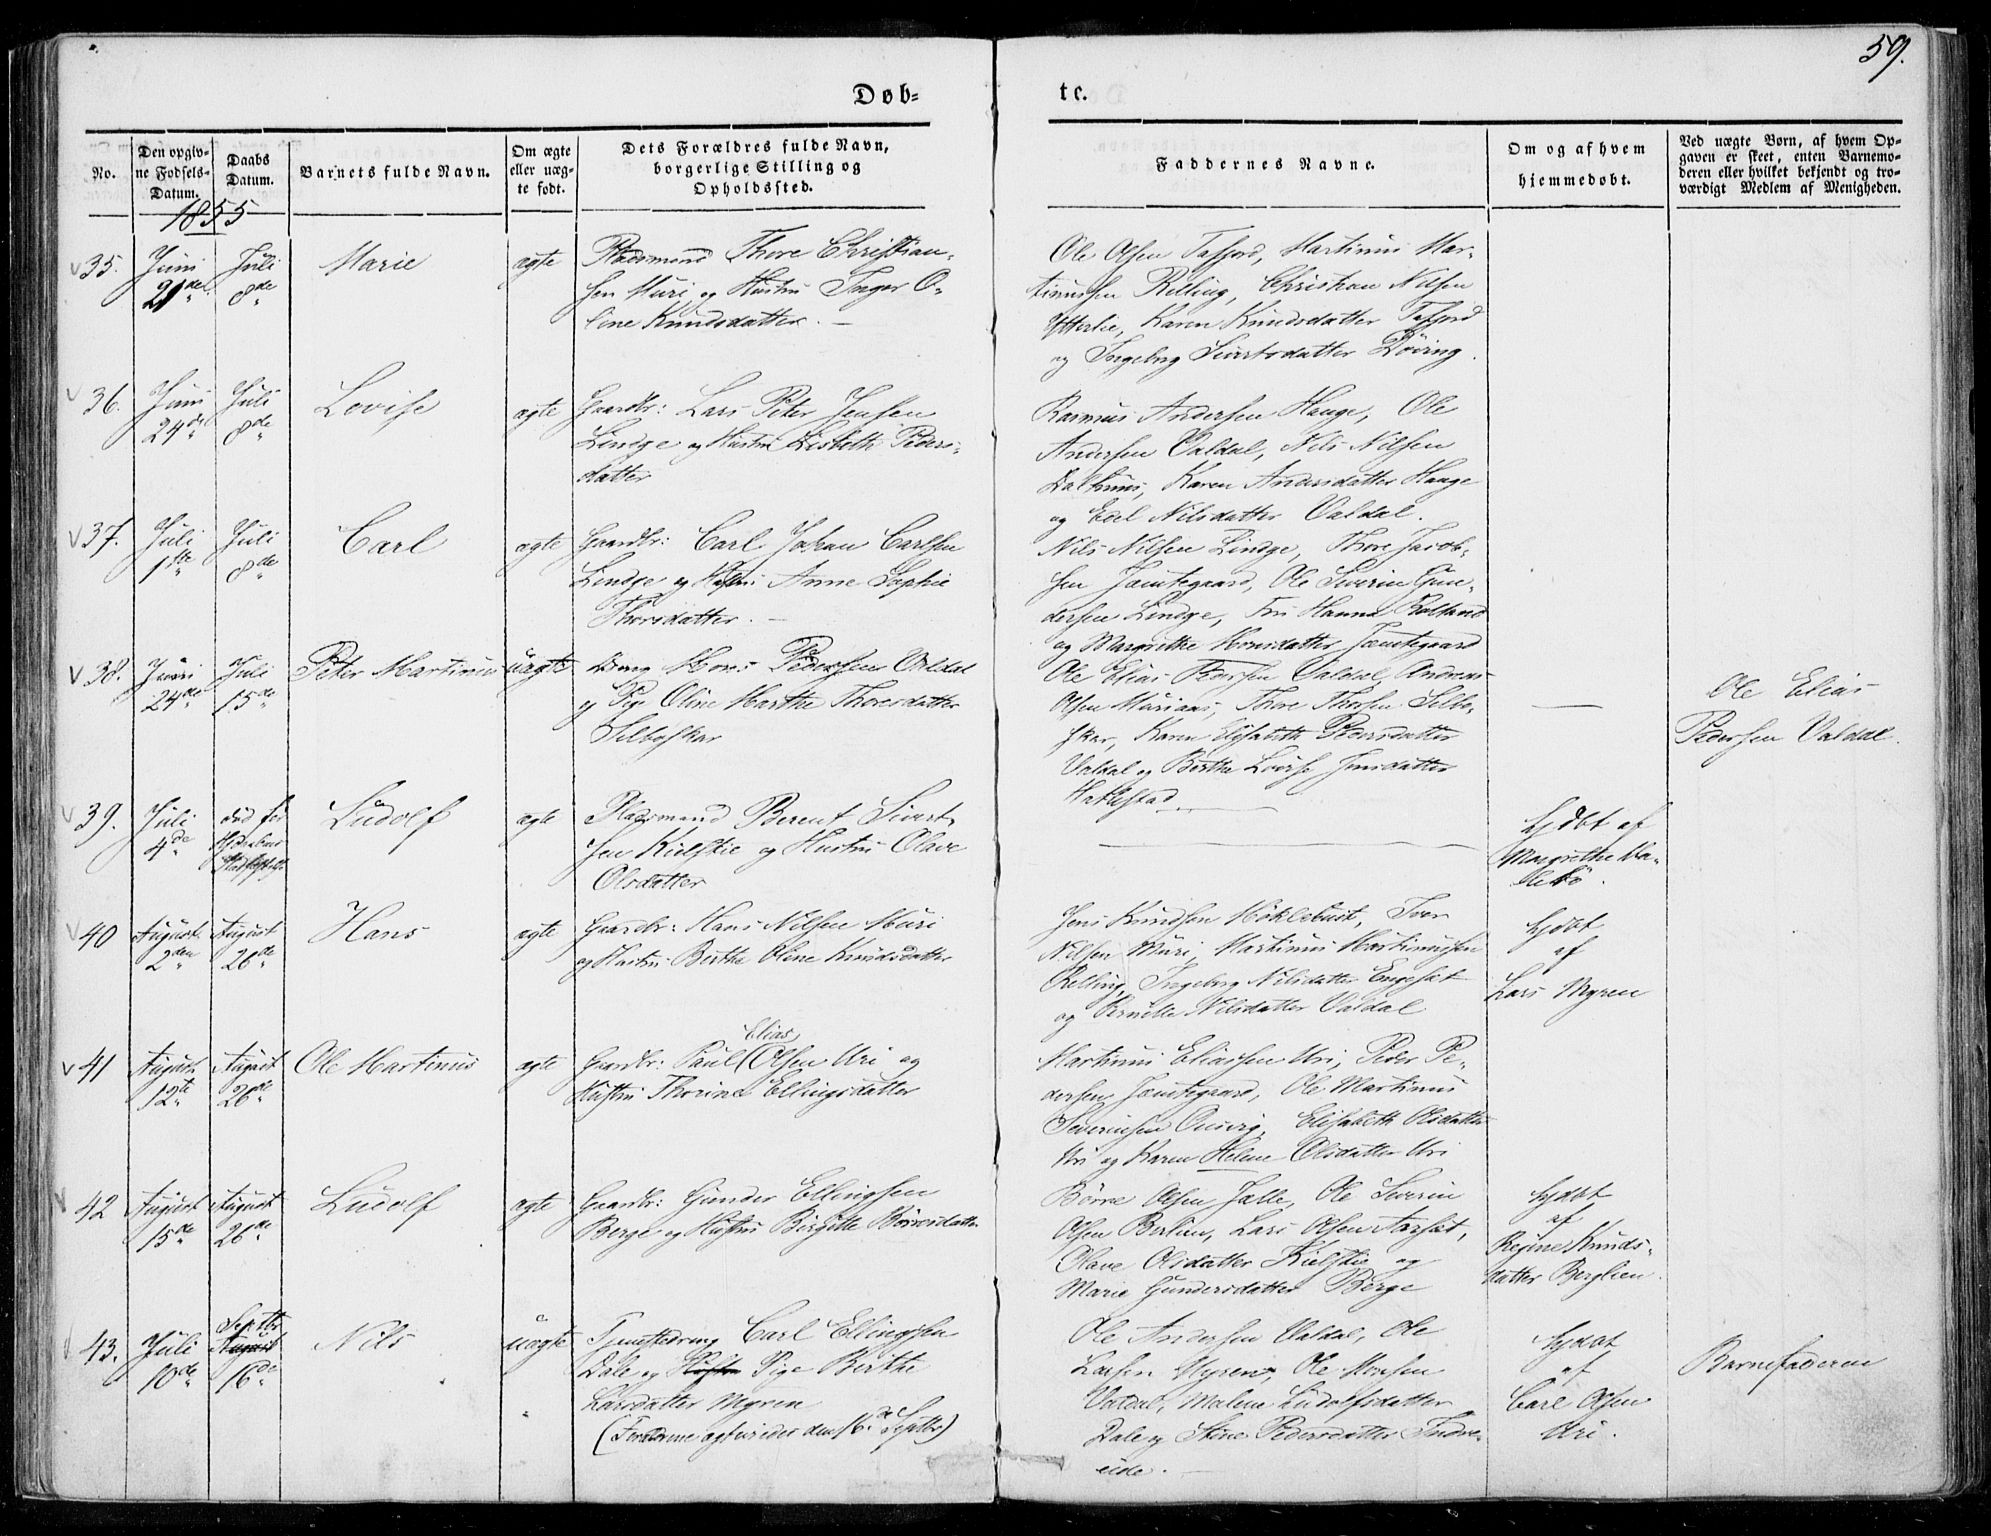 59.
Døb-
te.
No.
Den opgiv-
ne Fødsels-
Datum.
Daabs
Datum.
Barnets fulde Navn.
Om ægte
eller uæg-
te født.
Dets Forældres fulde Navn,
borgerlige Stilling og
Opholdssted.
Faddernes Navne.
Om og af hvem
hjemmedøbt.
Ved uægte Børn, af hvem Op-
gaven er skeet, enten Barnemo-
deren eller hvilket bekjendt og tro-
værdigt Medlem af Menigheden.
1855
35.
Juni
21de
Juli
8de
Marie
ægte
Pladsmand Thore Christian-
sen Muri og Hustru Inger O-
line Knudsdatter.
Ole Olsen Tafjord, Martinus Mar-
tinussen Relling, Christian Nilsen
Ytterlie, Karen Knudsdatter Tafjord
og Ingeborg Sivertsdatter Døving.
36.
Juni
24de
Juli
8de
Lovise
ægte
Gaardbr: Lars Peter Jensen
Lindge og Hustru Lisbeth Peders-
datter
Rasmus Andersen Hauge, Ole
Andersen Valdal, Nils Nilsen
Dalhuus, Karen Andersdatter Hauge
og Edel Nilsdatter Valdal.
37.
Juli
1ste
Juli
8de
Carl
ægte
Gaardbr: Carl Johan Carlsen
Lindge og Hustru Anne Sophie
Thorsdatter.
Nils Nilsen Lindge, Thore Jacob-
sen Jamtegaard, Ole Severin Gun-
dersen Lindge, Fru Hanna
og Margrethe Monsdatter Jamtegaard
38.
Juni
24de
Juli
15de
Peter Martinus
uægte
Dreng Mons Pedersen Valdal
og Pige Oline Marthe Thoresdatter
Selboskar
Ole Elias Pedersen Valdal, Andreas
Olsen Muriaas, Thore Thorsen Selbo-
skar, Karen Elisabeth Pedersdatter
Valdal og Berthe Lovise Jensdatter
Hatlestad.
Ole Elias
Pedersen Valdal.
39.
Juli
4de
død før
Ludolf
ægte
Pladsmand Berent Sivert-
sen Kielstie og Hustru Olave
Olsdatter
Hjdbt af
Margrethe
40
August
2den
August
26de
Hans
ægte
Gaardbr: Hans Nilsen Muri
og Hustru Berthe Oline Knudsdatter
Jens Knudsen Myklebust, Iver
Nilsen Muri, Martinus Martinussen
Relling, Ingeborg Nilsdatter Engeset
og Pernille Nilsdatter Valdal
Hjdbt
af
Lars Myren
41
August
12te
August
26de
Ole Martinus
ægte
Elias
Gaardbr: Paul (Olsen Uri og
Hustru Thorine Ellingsdatter
Martinus Eliassen Uri, Peder Pe-
dersen Jamtegaard, Ole Martinus
Severinsen Onsvig, Elisabeth Olsdatter
Uri og Karen Helene Olsdatter Uri
42
August
15de
August
26de
Ludolf
ægte
Gaardbr: Gunder Ellingsen
Berge og Hustru Birgitte Børresdatter
Børre Olsen Jølle, Ole Severin
Olsen Berlien, Lars Olsen Aarset,
Olave Olsdatter Kielstie og
Marie Gundersdatter Berge
Hjdbt
af
Regine Knuds-
datter Berglien.
43.
Juli
10de
Septbr
August
16de
Nils
uægte
Tjenestedreng Carl Ellingsen
Dale og Hustru Pige Berthe
Larsdatter Myren
(Forældrene ægteviedes den 16de Septbr)
Ole Andersen Valdal, Ole
Larsen Myren, Ole Monsen
Valdal, Malene Ludolfsdatter
Dale og Stine Pedersdatter Indre-
eide.
Hjdbt
af
Carl Olsen
Uri.
Barnefaderen